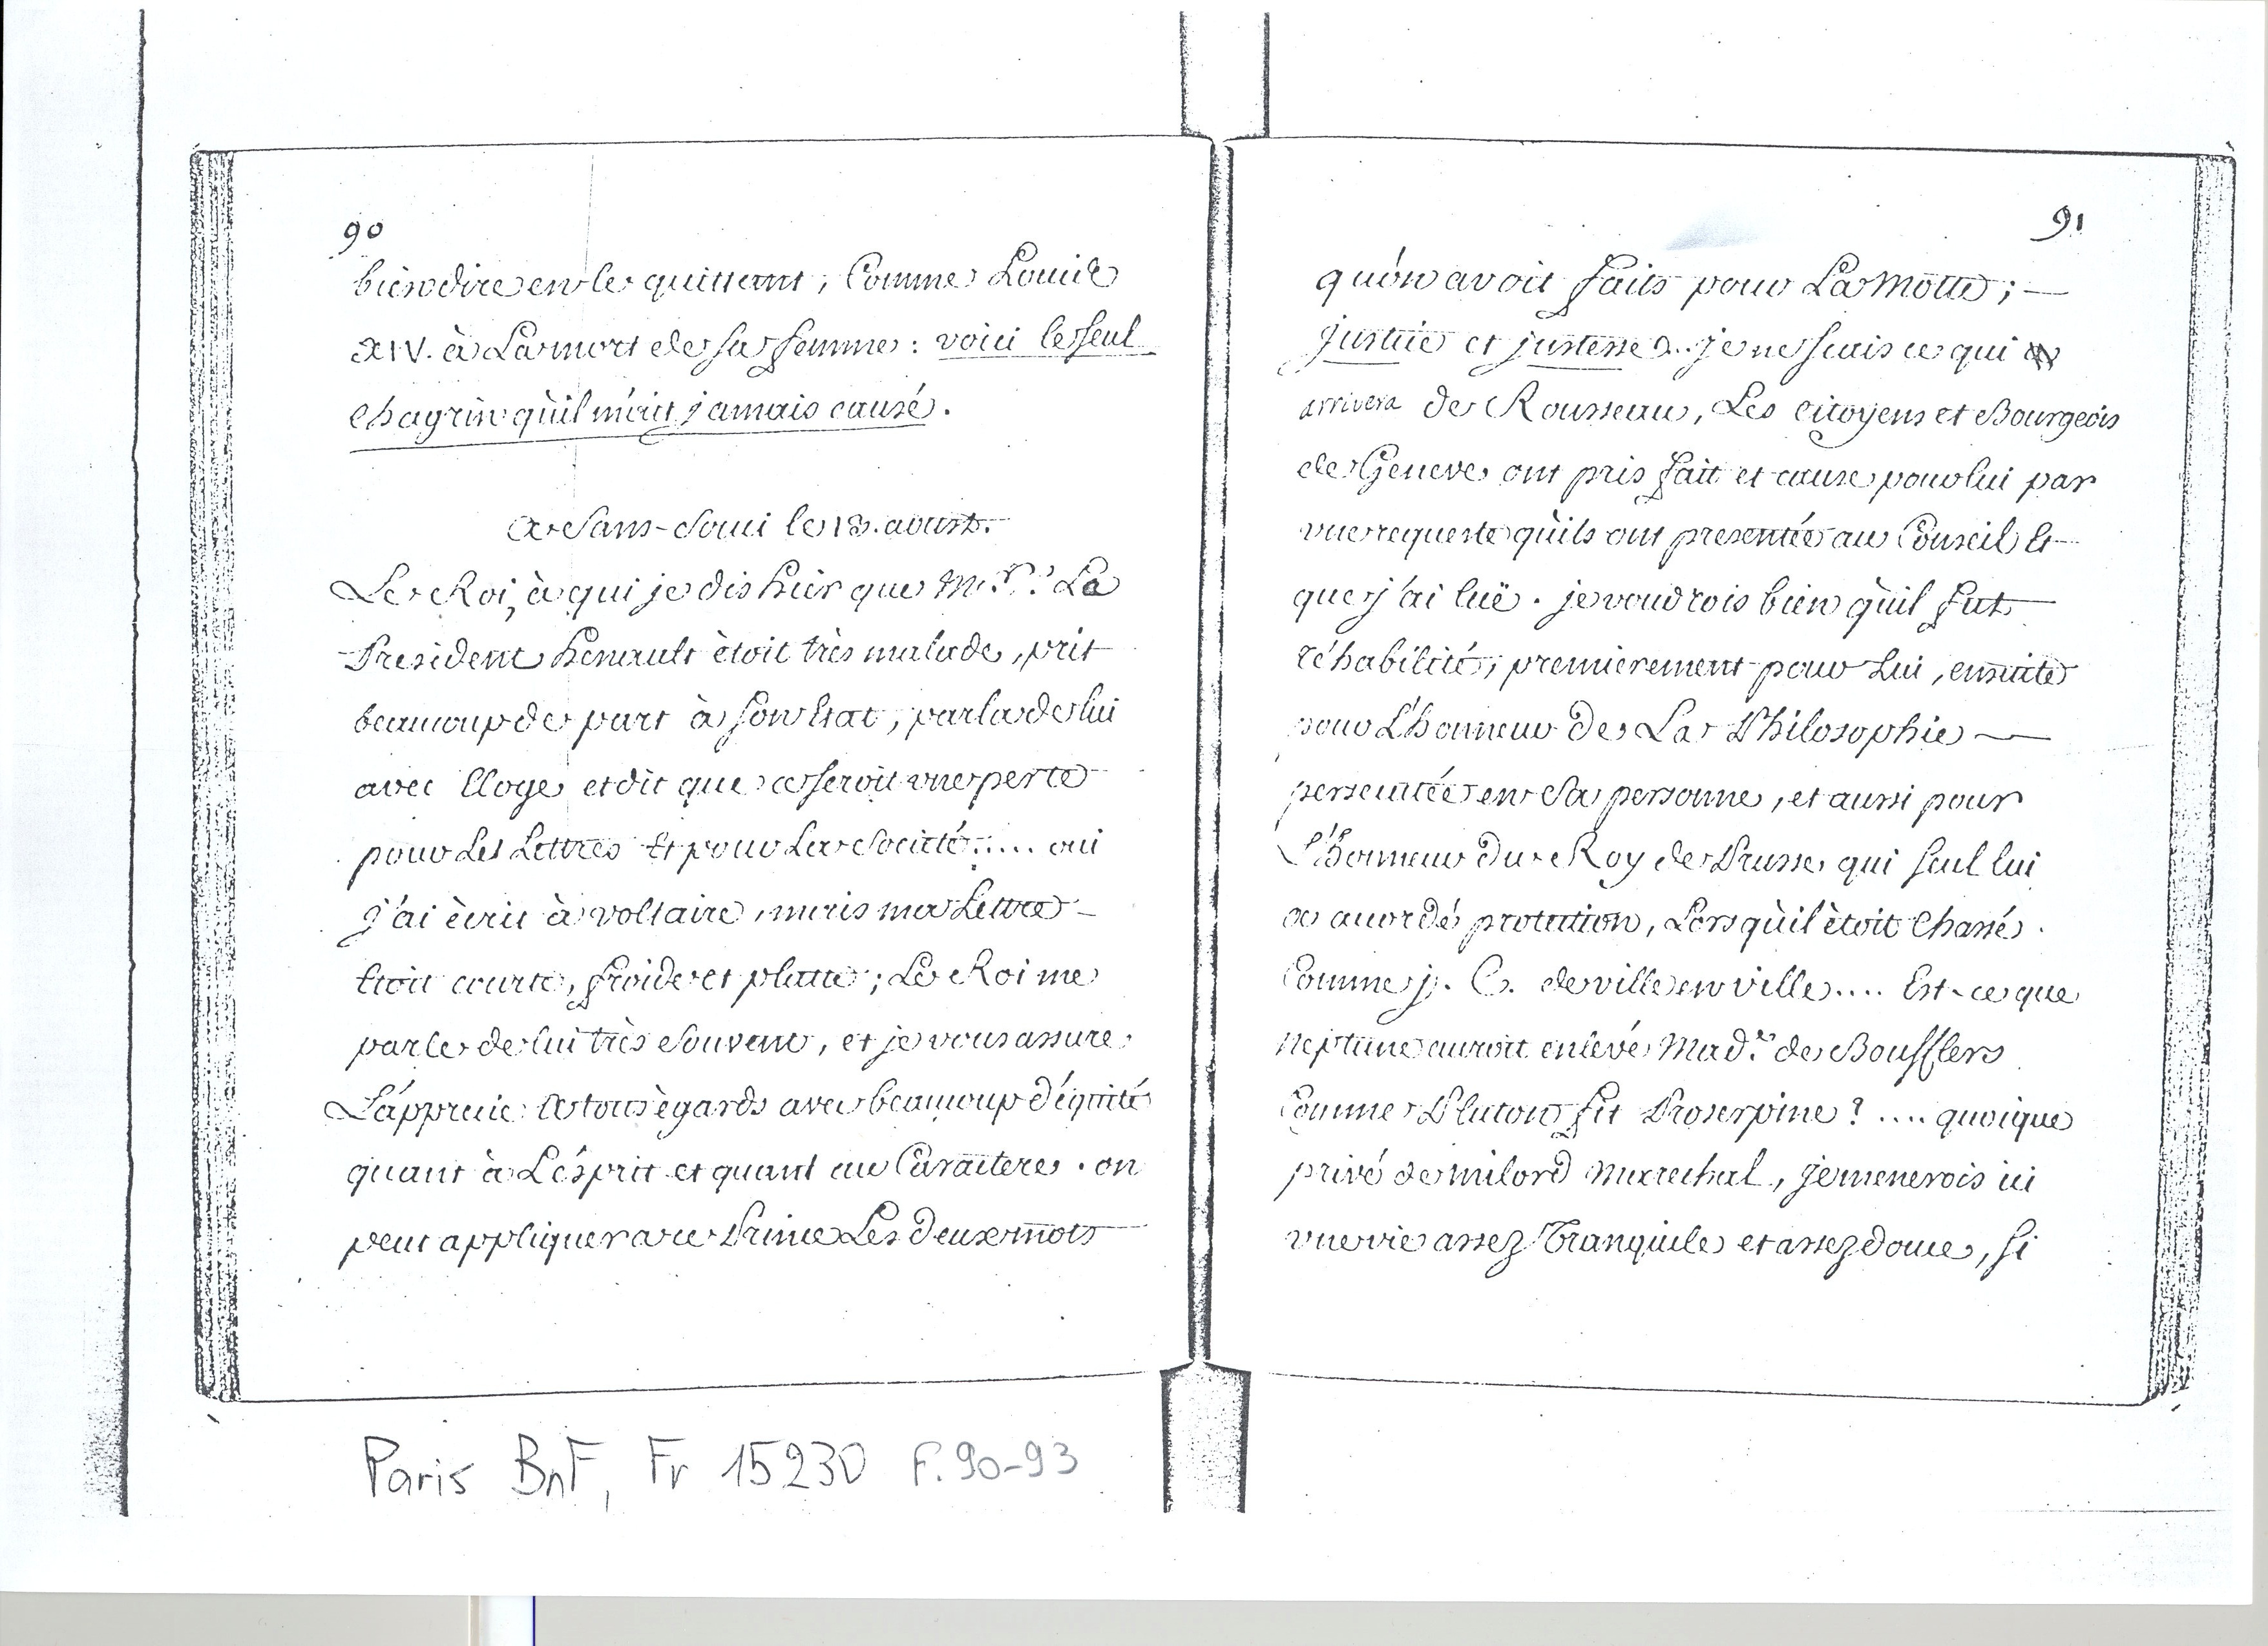 90
bien dire en le quittant, Comme Louis
XIV. à La mort de sa femme : voici le seul
chagrin qu'il m'ait jamais causé.
A Sans-Souci le 13. aoust.
Le Roi, à qui je dis hier que Mr. Le
President henault ètoit très malade, prit
beaucoup de part à son Etat, parla de lui
avec Eloge et dit que ce seroit une perte
pour Les Lettres Et pour La Societé..... oui
j'ai ècrit à voltaire, mais ma Lettre
Etoit courte, froide et platte ; Le Roi me
parle de lui très souvent, et je vous assure
L'apprecie à tous ègards avec beaucoup d'équité
quant à L'ésprit et quant au Caractere. on
peut appliquer a ce Prince Les deux mots
91
qu'on avoit faits pour La Motte ;
justice et justesse... je ne scais ce qui
arrivera de Rousseau, Les citoyens et Bourgeois
de Geneve ont pris fait et cause pour lui par
une requeste qu'ils ont presentée au Conseil Et
que j'ai luë. je voudrois bien qu'il fut
réhabilité, premierement pour Lui, ensuite
pour L'honneur de La Philosophie
persecutée en Sa personne, et aussi pour
L'honneur du Roy de Prusse qui seul lui
a accordé protection, Lors qu'il ètoit Chassé
Comme j. C. de ville en ville.... Est-ce que
neptune auroit enlevé Made. de Boufflers
Comme Pluton fit Proserpine ? .... quoique
privé de milord Marechal, je menerois ici
une vie assez Tranquile et assez douce, si
Paris BnF, Fr 15230 F. 90-93